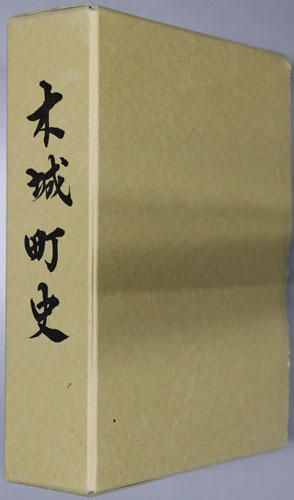 木城町史